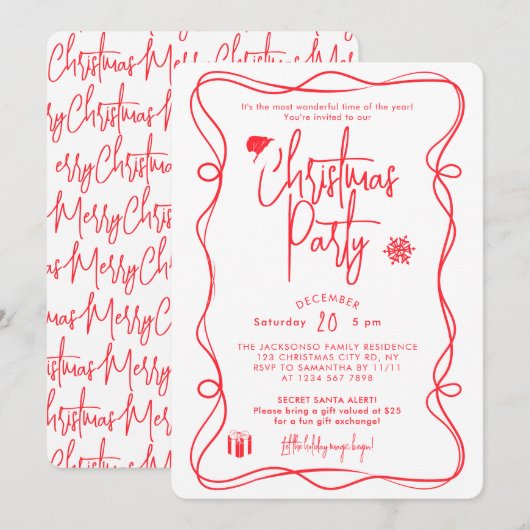 Christmas Merry
Merry Christmas
erry Christmas
Merry Christ
Merry Chris
Christmas Merry
Christmas Merry
Christmas Merry
It's the most wonderful time of the year!
You're invited to our
Christmas
Party
DECEMBER
Saturday 20 5 pm
THE JACKSONSO FAMILY RESIDENCE
123 CHRISTMAS CITY RD, NY
RSVP TO SAMANTHA BY 11/11
AT 1234 567 7898
SECRET SANTA ALERT!
Please bring a gift valued at $25
for a fun gift exchange!
Let the holiday magic begin!